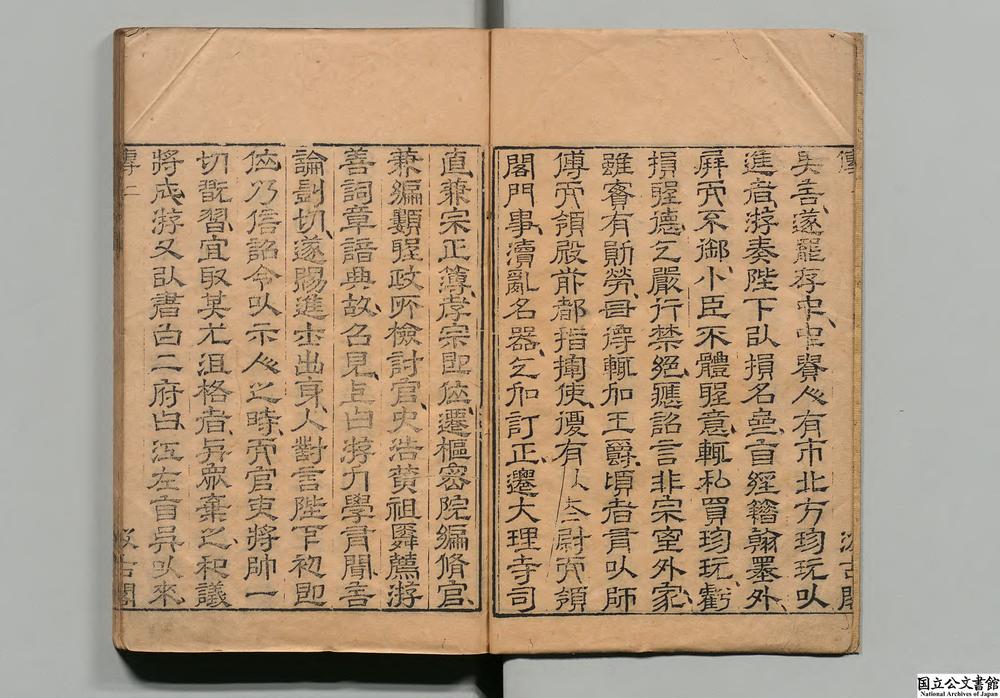 傳一
汲古閣
其善遂罷存中中貴人有市北方珍玩以
進者游奏陛下以損名齋自經籍翰墨外
屏而不御小臣不體聖意輒私買珍玩虧
損聖德乞嚴行禁絕應詔言非宗室外家
雖實有勛勞毋得輒加王爵頃者有以師
傅而領殿前都指揮使復有以太尉而領
閣門事瀆亂名器乞加訂正遷大理寺司
直兼宗正簿孝宗即位遷樞密院編修官
兼編類聖政所檢討官史浩黃祖舜薦游
善詞章諳典故召見上曰游力學有聞言
論剴切遂賜進士出身入對言陛下初即
位乃信詔令以示人之時而官吏將帥一
切翫習宜取其尤沮格者與眾棄之和議
將成游又以書白二府曰江左自吳以來
傳一
汲古閣
国立公文書館
National Archives of Japan